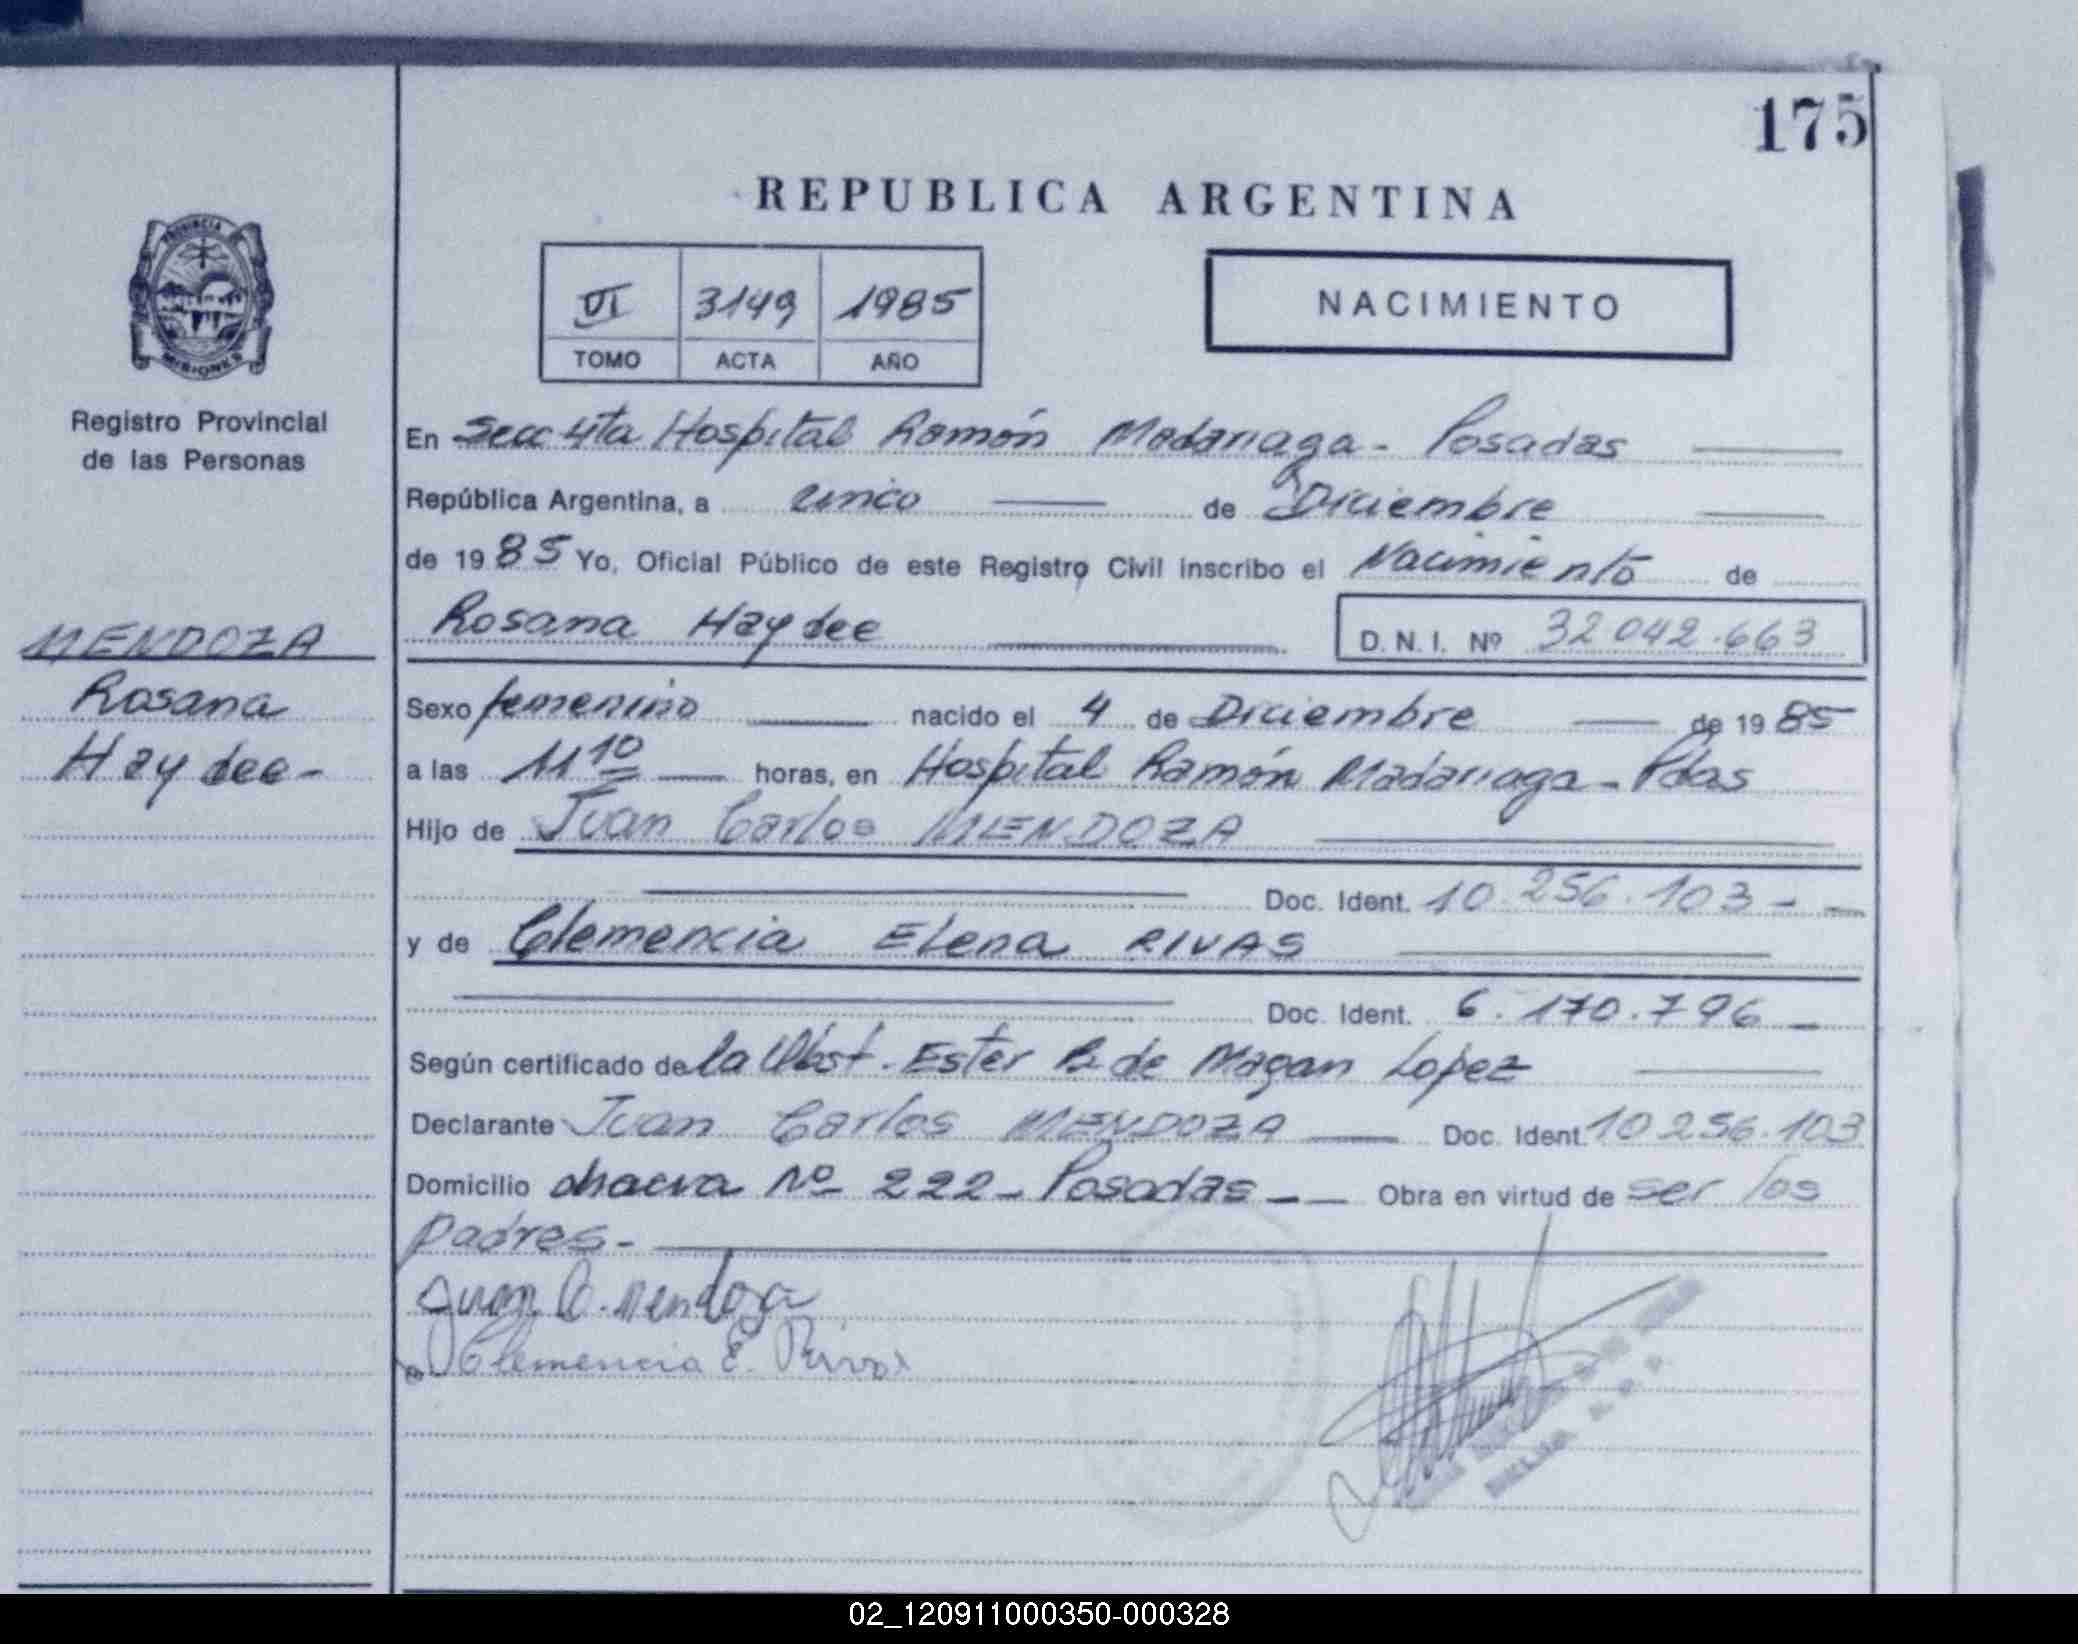 175
REPUBLICA ARGENTINA
VI 3149 1985
TOMO ACTA AÑO
NACIMIENTO
PROVINCIA DE
MISIONES
Registro Provincial
de las Personas
MENDOZA
Rosana
Haydee-
En Secc 4ta Hospital Ramón Madariaga - Posadas
República Argentina, a cinco de Diciembre
de 1985 Yo, Oficial Público de este Registro Civil inscribo el Nacimiento de
Rosana Haydee D. N. I. Nº 32 042.663
Sexo femenino nacido el 4 de Diciembre de 1985
a las 11 10 horas, en Hospital Ramón Madariaga - Pdas
Hijo de Juan Carlos MENDOZA
Doc. Ident. 10.256.103 - -
y de Clemencia Elena RIVAS
Doc. Ident. 6.170.796 -
Según certificado de la Obst. Ester B de Magan Lopez
Declarante Juan Carlos MENDOZA Doc. Ident. 10 256.103
Domicilio Nº 222 - Posadas - - Obra en virtud de ser los
padres -
Juan C. Mendoza
Clemencia E. Rivas
02_120911000350-000328